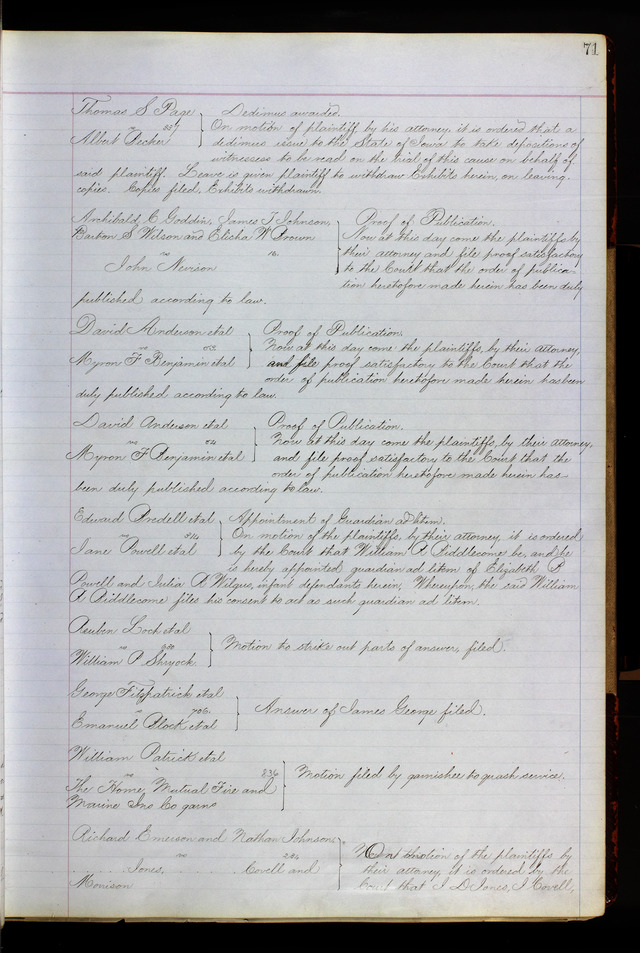 71
Thomas S Page Dedimus awarded.
vs 557 On motion of plaintiff by his attorney, it is ordered that a
Albert Decker dedimus issue to the State of Iowa to take depositions of
witnesses to be read on the trial of this cause on behalf of
said plaintiff. Leave is given plaintiff to withdraw Exhibits herein, on leaving
copies. Copies filed, Exhibits withdrawn.
Archibald C Goddin, James T Johnson, Proof of Publication.
Barton S Wilson and Elisha W Brown Now at this day come the plaintiffs by
vs 10. their attorney and file proof satisfactory
John Nevison to the Court that the order of publica-
tion heretofore made herein has been duly
published according to law.
David Anderson et al Proof of Publication.
vs 53. Now at this day come the plaintiffs, by their attorney,
Myron F Benjamin et al and file proof satisfactory to the Court that the
order of publication heretofore made herein has been
duly published according to law.
David Anderson et al Proof of Publication.
vs 54 Now at this day come the plaintiffs, by their attorney,
Myron F Benjamin et al and file proof satisfactory to the Court that the
order of publication heretofore made herein has
been duly published according to law.
Edward Bredell et al Appointment of Guardian ad litem.
vs On motion of the plaintiffs, by their attorney, it is ordered
Jane Powell et al by the Court that William A Biddlecome be, and he
is hereby appointed guardian ad litem of Elizabeth P
Powell and Julia A Wilgus, infant defendants herein, Whereupon, the said William
A Biddlecome files his consent to act as such guardian ad litem.
Reuben Loch et al
vs Motion to strike out parts of answer, filed.
William P Shryock
George Fitzpatrick et al
vs 706. Answer of James George filed.
Emanuel Block et al
William Patrick et al
vs 236 Motion filed by garnishee to quash service.
The Home Mutual Fire and
Marine Ins Co garns
Richard Emerson and Nathan Johnson,
vs On motion of the plaintiffs by
Jones, Covell and their attorney, it is ordered by the
Monison Court that J D Jones, J Covell,